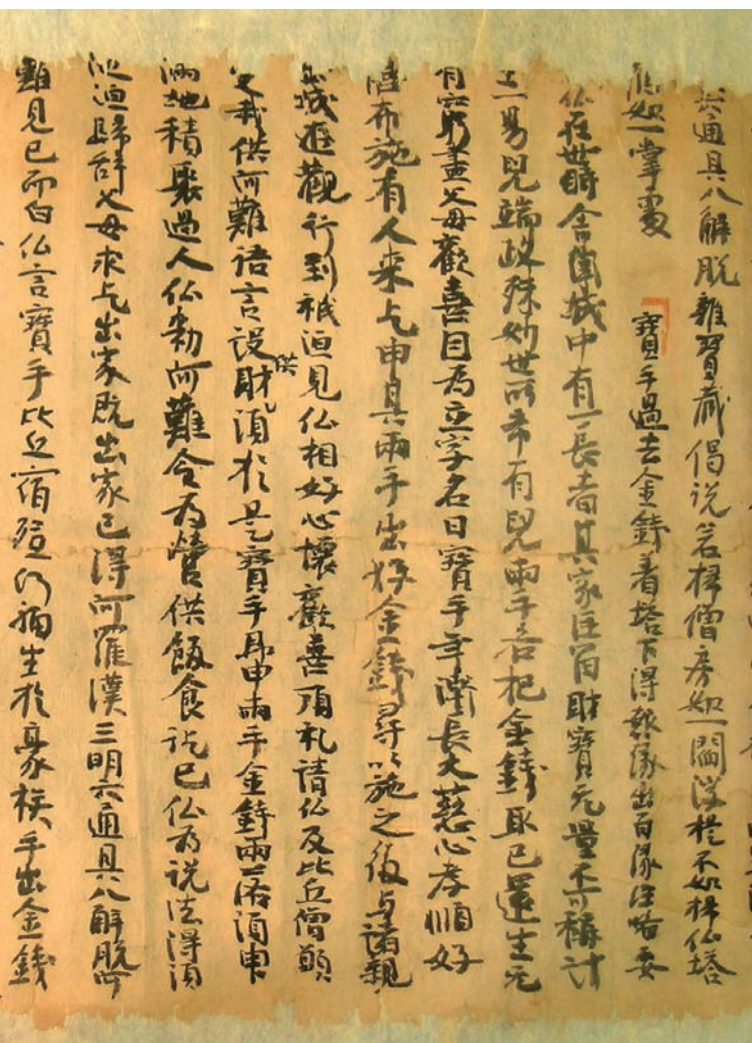 六通具八解脫雜寶藏偈說若掃僧房如一閻浮提不如掃仏塔
應如一掌處 寶手過去金錢着塔下得報緣出百緣經略要
仏在世時舍衛城中有一長者其家巨富財寶无量不可稱計
生一男兒端政殊妙世所希有兒兩手各把金錢取已還生无
有窮盡父母歡喜因為立字名曰寶手年漸長大慈心孝順好
憙布施有人来乞申其兩手出好金錢尋以施之後与諸親
出城遊觀行到祇洹見仏相好心懷歡喜頂礼請仏及比丘僧願
受我供阿難語言設供財須於是寶手即申兩手金錢雨落須臾
滿地積聚過人仏勑阿難令为營供飯食訖已仏为說法得須
陁洹歸辞父母求乞出家既出家已得阿羅漢三明六通具八解脫阿
難見已而白仏言寶手比丘宿殖何福生於豪族手出金錢